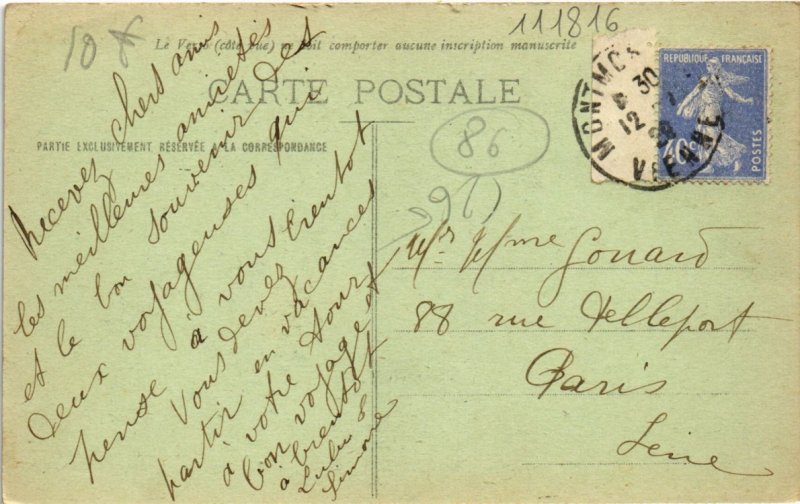 111816
10 f
Le Verso (côté vue) ne doit comporter aucune inscription manuscrite
CARTE POSTALE
PARTIE EXCLUSIVEMENT RÉSERVÉE A LA CORRESPONDANCE
86
RÉPUBLIQUE FRANÇAISE
40c
POSTES
VIENNE
12
30
Recevez chers amis
les meilleures amitiés
et le bon souvenir des
deux voyageuses qui
pense à vous bientôt
Vous devez
partir en vacances
à votre tour
bon voyage et
à bientôt
Lulu &
Simone
Mr Mme Gouard
88 rue Pelleport
Paris
Seine